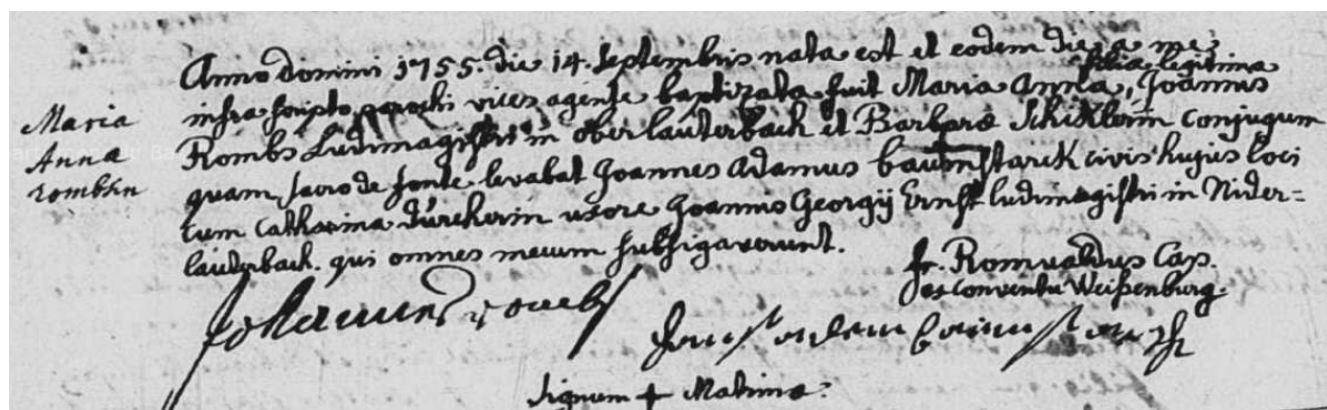 Anno domini 1755. die 14. septembris nata est et eodem die a me
filia legitima
infra scripto parochi vices agente baptizata fuit Maria Anna, Joannis
Maria
Rombs Ludimagistri in oberlauterbach et Barbarae Schiklerin conjugum
Anna
quam sacro de fonte levabat Joannes Adamus baumstarck civis hujus loci
rombsin
cum Catharina dürckerin uxore Joannis Georgij Ernst ludimagistri in Nider=
lauterbach. qui omnes mecum subsigaverunt.
fr. Romualdus Cap.
ex conventu Weißenburg.
Johannes rombs
signum + Matrinae.